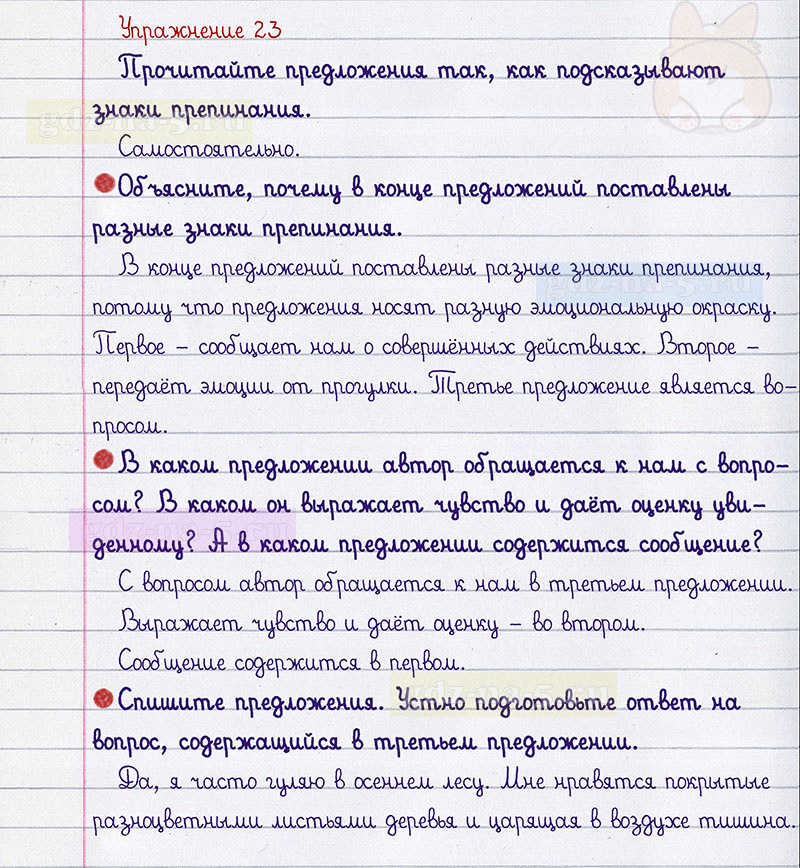 Упражнение 23
Прочитайте предложения так, как подсказывают
знаки препинания.
gdz-na-5.ru
Самостоятельно.
Объясните, почему в конце предложений поставлены
разные знаки препинания.
В конце предложений поставлены разные знаки препинания,
gdz-na-5.ru
потому что предложения носят разную эмоциональную окраску.
Первое – сообщает нам о совершённых действиях. Второе –
передаёт эмоции от прогулки. Третье предложение является во-
просом.
В каком предложении автор обращается к нам с вопро-
сом? В каком он выражает чувство и даёт оценку уви-
денному? А в каком предложении содержится сообщение?
gdz-na-5.ru
С вопросом автор обращается к нам в третьем предложении.
Выражает чувство и даёт оценку – во втором.
Сообщение содержится в первом.
Спишите предложения. Устно подготовьте ответ на
gdz-na-5.ru
вопрос, содержащийся в третьем предложении.
Да, я часто гуляю в осеннем лесу. Мне нравятся покрытые
разноцветными листьями деревья и царящая в воздухе тишина.